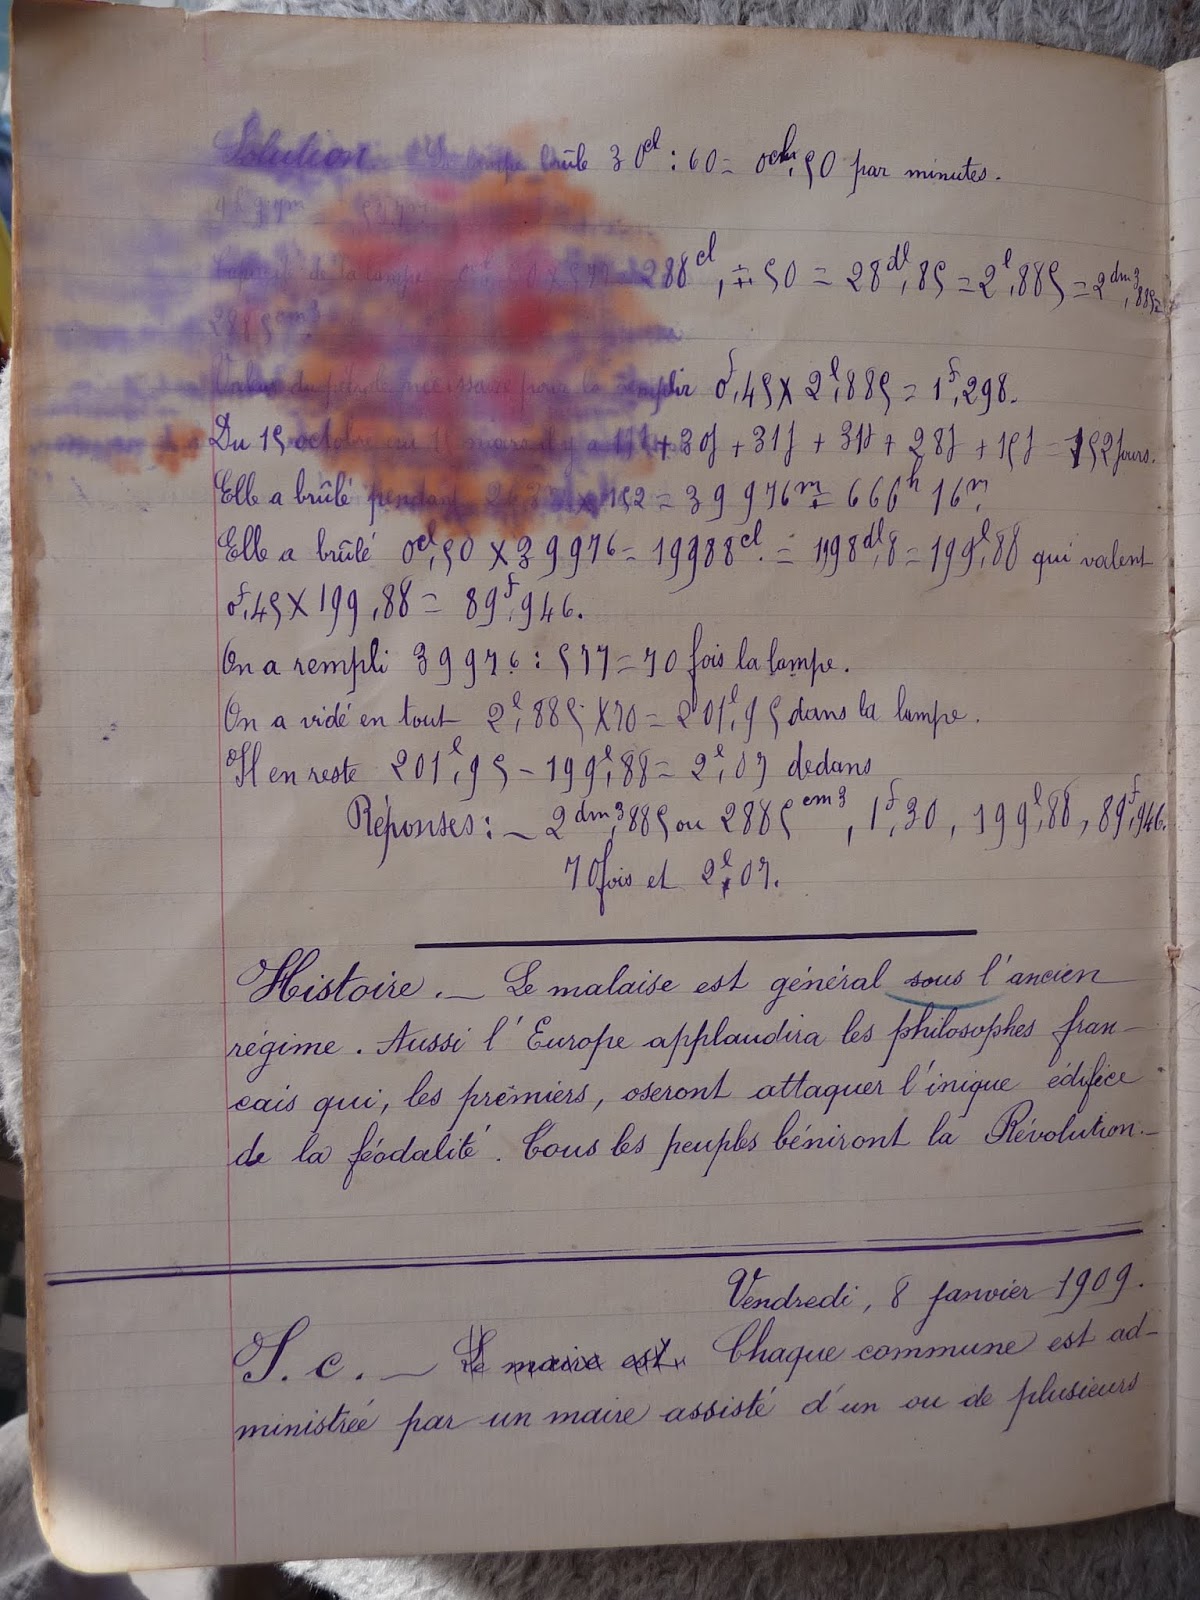 Solution. La lampe brûle 30cl : 60 = 0cl,50 par minutes.
Capacité de la lampe 0cl,50 x 577 = 288cl, 50 = 28dl,85 = 2l,885 = 2dm3,885 =
2885cm3
Valeur du pétrole nécessaire pour la remplir 0f,45 x 2l,885 = 1f,298.
Du 15 octobre au 15 mars il y a 17j + 30j + 31j + 31j + 28j + 15j = 152 jours.
Elle a brûlé pendant 263 x 152 = 39976m = 666h 16m
Elle a brûlé 0cl,50 x 39976 = 19988cl. = 1998dl,8 = 199l,88 qui valent
0f,45 x 199,88 = 89f,946.
On a rempli 39976 : 577 = 70 fois la lampe.
On a vidé en tout 2l,885 x 70 = 201l,95 dans la lampe.
Il en reste 201l,95 - 199l,88 = 2l,07 dedans
Réponses : - 2dm3,885 ou 2885cm3, 1f,30, 199l,88, 89f,946.
70 fois et 2l,07.
Histoire. - Le malaise est général sous l'ancien
régime. Aussi l'Europe applaudira les philosophes fran-
cais qui, les premiers, oseront attaquer l'inique édifice
de la féodalité. Tous les peuples béniront la Révolution. -
Vendredi, 8 janvier 1909.
I. c. - Le maire est Chaque commune est ad-
ministrée par un maire assisté d'un ou de plusieurs